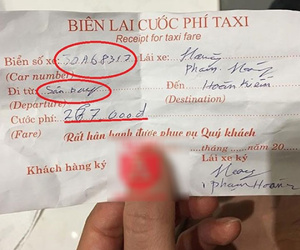 BIÊN LAI CƯỚC PHÍ TAXI
Receipt for taxi fare
Biển số xe: 30A68317 Lái xe: Hoàng
(Car number) Phạm Hoàng
Đi từ: Sân bay Đến Hoàn Kiếm
(Departure) (Destination)
Cước phí: 287.000đ
(Fare) Rất hân hạnh được phục vụ Quý khách
tháng năm 20
Khách hàng ký Lái xe ký
Hoàng
Phạm Hoàng